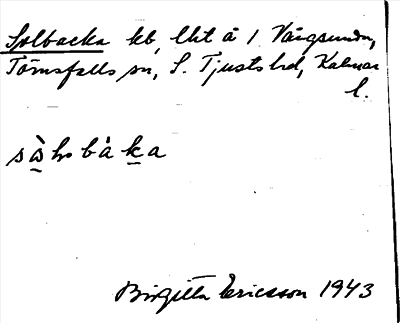 Solbacka kb, lht å 1 Vårgsunda,
Törnsfalls sn, S. Tjusts hd, Kalmar
l.
Birgitta Ericsson 1943